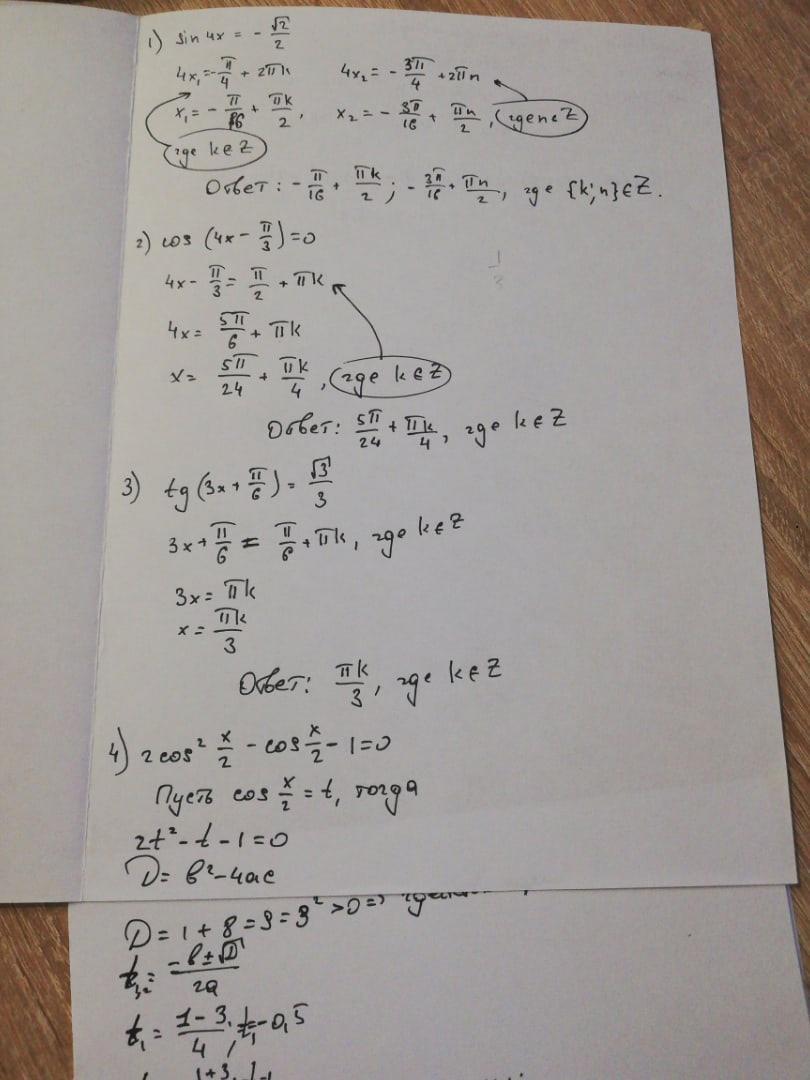 1) sin 4x = - √2/2
4x₁ = -π/4 + 2πk 4x₂ = - 3π/4 + 2πn
x₁ = - π/16 + πk/2, x₂ = - 3π/16 + πn/2, где n∈Z
где k∈Z
Ответ: - π/16 + πk/2; - 3π/16 + πn/2, где {k;n}∈Z.
2) cos (4x - π/3) = 0
4x - π/3 = π/2 + πk
4x = 5π/6 + πk
x = 5π/24 + πk/4, где k∈Z
Ответ: 5π/24 + πk/4, где k∈Z
3) tg (3x + π/6) = √3/3
3x + π/6 = π/6 + πk, где k∈Z
3x = πk
x = πk/3
Ответ: πk/3, где k∈Z
4) 2cos² x/2 - cos x/2 - 1 = 0
Пусть cos x/2 = t, тогда
2t² - t - 1 = 0
D = b² - 4ac
D = 1 + 8 = 9 = 3² > 0 =>
= -b±√D/2a
t₁ = 1-3/4, t₁ = -0,5
1+3